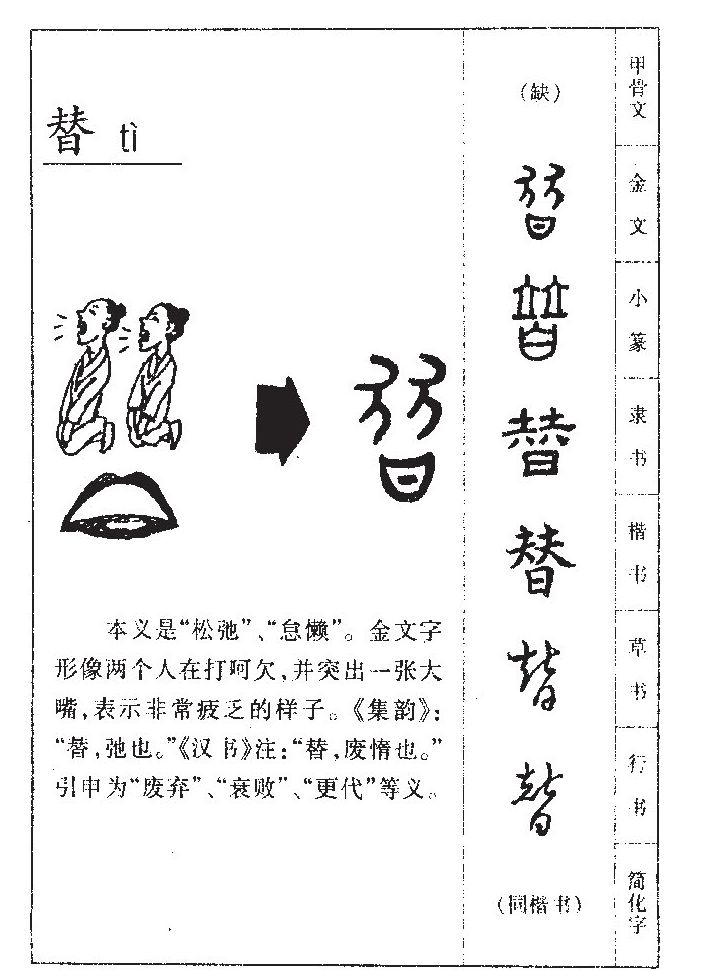 替 tì
本义是“松弛”、“怠懒”。金文字
形像两个人在打呵欠,并突出一张大
嘴,表示非常疲乏的样子。《集韵》:
“替,弛也。”《汉书》注:“替,废惰也。”
引申为“废弃”、“衰败”、“更代”等义。
(缺)
替
替
替
替
替
替
(同楷书)
甲骨文
金文
小篆
隶书
楷书
草书
行书
简化字